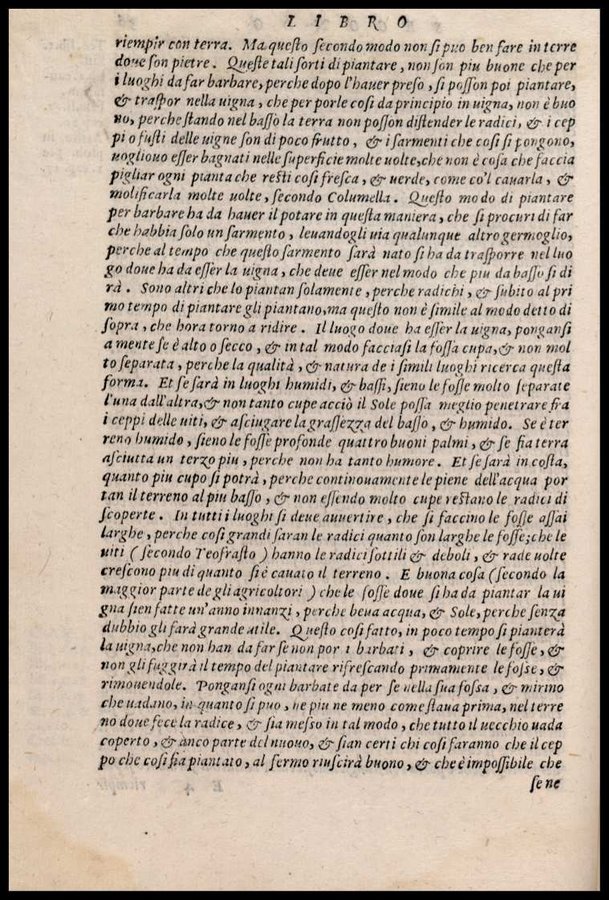 LIBRO
riempir con terra. Ma questo secondo modo non si puo ben fare in terre
doue son pietre. Queste tali sorti di piantare, non son piu buone che per
i luoghi da far barbare, perche dopo l'hauer preso, si posson poi piantare,
& traspor nella uigna, che per porle cosi da principio in uigna, non è buo
no, perche stando nel basso la terra non posson distender le radici, & i cep
pi o fusti delle uigne son di poco frutto, & i sarmenti che cosi si pongono,
uogliouo esser bagnati nelle superficie molte uolte, che non è cosa che faccia
pigliar ogni pianta che resti cosi fresca, & uerde, come co'l cauarla, &
molificarla molte uolte, secondo Columella. Questo modo di piantare
per barbare ha da hauer il potare in questa maniera, che si procuri di far
che habbia solo un sarmento, leuandogli uia qualunque altro germoglio,
perche al tempo che questo sarmento sarà nato si ha da trasporre nel luo
go doue ha da esser la uigna, che deue esser nel modo che piu da basso si di
rà. Sono altri che lo piantan solamente, perche radichi, & subito al pri
mo tempo di piantare gli piantano, ma questo non è simile al modo detto di
sopra, che hora torno a ridire. Il luogo doue ha esser la uigna, pongansi
a mente se è alto o secco, & in tal modo facciasi la fossa cupa, & non mol
to separata, perche la qualità, & natura de i simili luoghi ricerca questa
forma. Et se sarà in luoghi humidi, & bassi, sieno le fosse molto separate
l'una dall'altra, & non tanto cupe acciò il Sole possa meglio penetrare fra
i ceppi delle uiti, & asciugare la grassezza del basso, & humido. Se è ter
reno humido, sieno le fosse profonde quattro buoni palmi, & se fia terra
asciutta un terzo piu, perche non ha tanto humore. Et se sarà in costa,
quanto piu cupo si potrà, perche continouamente le piene dell'acqua por
tan il terreno al piu basso, & non essendo molto cupe restano le radici di
scoperte. In tutti i luoghi si deue auuertire, che si faccino le fosse assai
larghe, perche cosi grandi saran le radici quanto son larghe le fosse; che le
uiti (secondo Teofrasto) hanno le radici sottili & deboli, & rade uolte
crescono piu di quanto si è cauato il terreno. E buona cosa (secondo la
maggior parte de gli agricoltori) che le fosse doue si ha da piantar la ui
gna sien fatte un'anno innanzi, perche beua acqua, & Sole, perche senza
dubbio gli farà grande utile. Questo cosi fatto, in poco tempo si pianterà
la uigna, che non han da far se non por i barbati, & coprire le fosse, &
non gli fuggirà il tempo del piantare rifrescando primamente le fosse, &
rimouendole. Pongansi ogni barbate da per se nella sua fossa, & mirino
che uadano, in quanto si puo, ne piu ne meno come staua prima, nel terre
no doue fece la radice, & sia messo in tal modo, che tutto il uecchio uada
coperto, & anco parte del nuouo, & sian certi chi cosi faranno che il cep
po che cosi sia piantato, al fermo riuscirà buono, & che è impossibile che
se ne